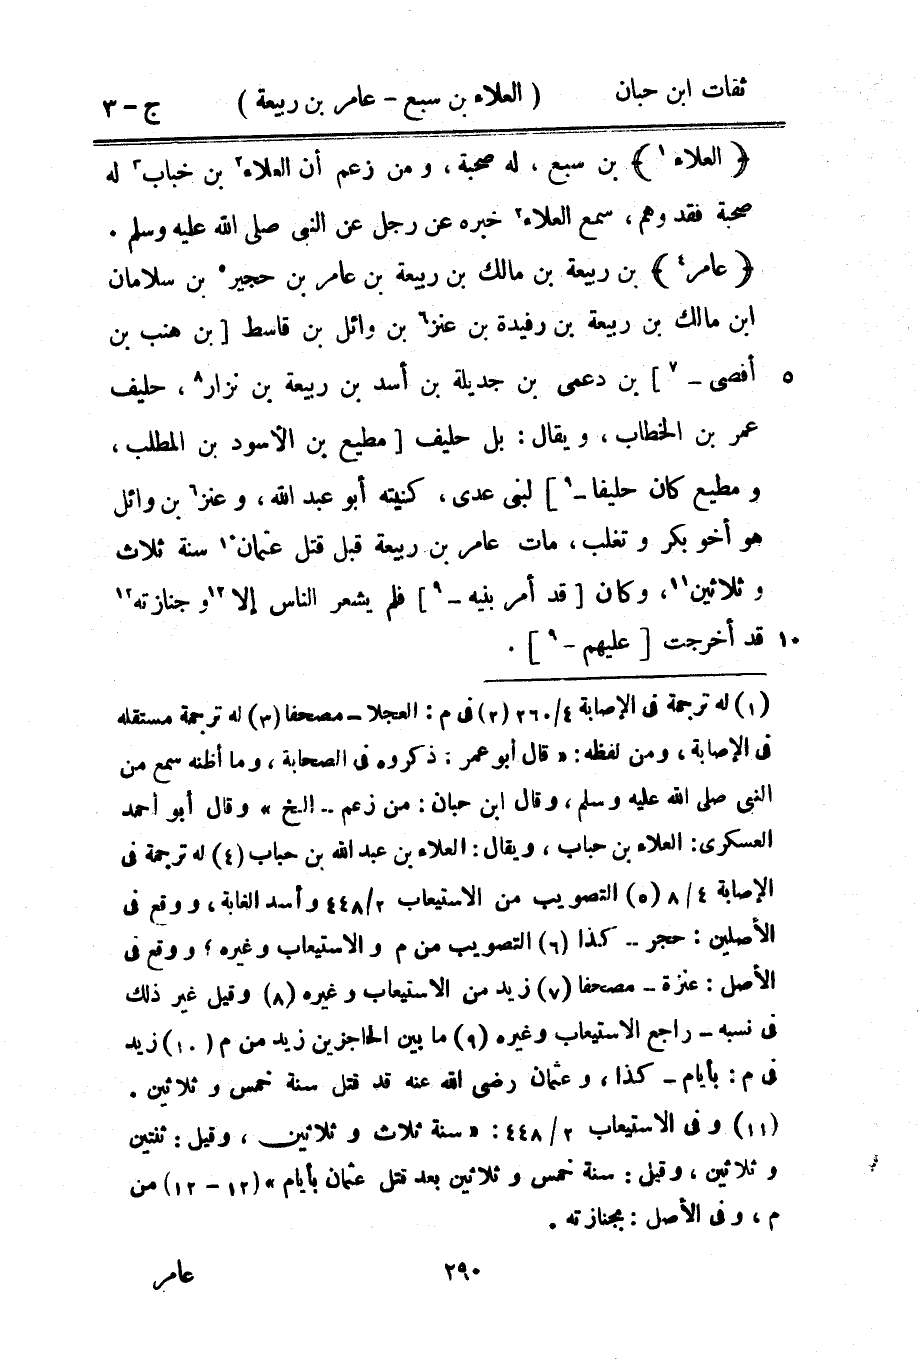 ثقات ابن حبان ( العلاء بن سبع – عامر بن ربيعة ) ج – ٣
﴿ العلاء ١ ﴾ بن سبع ، له صحبة ، و من زعم أن العلاء٢ بن خباب٣ له
صحبة فقد وهم ، سمع العلاء٢ خبره عن رجل عن النبى صلى الله عليه وسلم .
﴿ عامر٤ ﴾ بن ربيعة بن مالك بن ربيعة بن عامر بن حجير٥ بن سلامان
ابن مالك بن ربيعة بن رفيدة بن عنز٦ بن وائل بن قاسط [ بن هنب بن
٥ أفصى – ٧ ] بن دعمى بن جديلة بن أسد بن ربيعة بن نزار٨ ، حليف
عمر بن الخطاب ، و يقال : بل حليف [ مطيع بن الأسود بن المطلب ،
و مطيع كان حليفا – ٩ ] لبنى عدى ، كنيته أبو عبد الله ، و عنز٦ بن وائل
هو أخو بكر و تغلب ، مات عامر بن ربيعة قبل قتل عثمان١٠ سنة ثلاث
و ثلاثين١١ ، وكان [ قد أمر بنيه – ٩ ] فلم يشعر الناس إلا ١٢و جنازته١٢
١٠ قد أخرجت [ عليهم – ٩ ] .
(١) له ترجمة فى الإصابة ٤/٢٦٠ (٢) فى م : العجلا – مصحفا (٣) له ترجمة مستقله
فى الإصابة ، ومن لفظه : « قال أبو عمر : ذكروه فى الصحابة ، وما أظنه سمع من
النبى صلى الله عليه وسلم ، وقال ابن حبان : من زعم .. الخ » وقال أبو أحمد
العسكرى : العلاء بن حباب ، ويقال : العلاء بن عبد الله بن حباب (٤) له ترجمة فى
الإصابة ٤ / ٨ (٥) التصويب من الاستيعاب ٢ /٤٤٨ و أسد الغابة ، و وقع فى
الأصلين : حجر .. كذا (٦) التصويب من م و الاستيعاب وغيره ؛ و وقع فى
الأصل : عنزة – مصحفا (٧) زيد من الاستيعاب وغيره (٨) وقيل غير ذلك
فى نسبه – راجع الاستيعاب وغيره (٩) ما بين الحاجزين زيد من م (١٠) زيد
فى م : بأيام – كذا ، و عثمان رضى الله عنه قد قتل سنة خمس و ثلاثين .
(١١) و فى الاستيعاب ٢ /٤٤٨ : « سنة ثلاث و ثلاثين ، وقيل : ثنتين
و ثلاثين ، وقيل : سنة خمس و ثلاثين بعد قتل عثمان بأيام » (١٢ – ١٢) من
م ، و فى الأصل : بجنازته .
٢٩٠ عامر